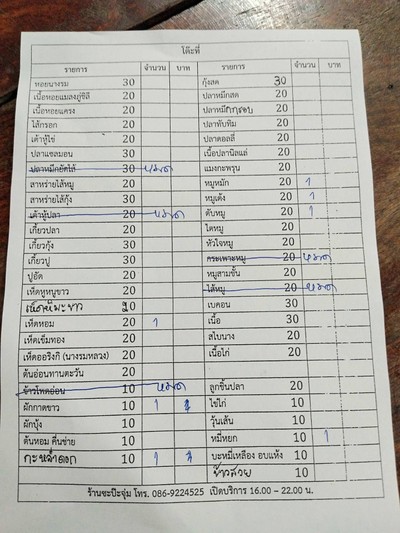 โต๊ะที่
รายการ จำนวน บาท รายการ จำนวน บาท
หอยนางรม 30 กุ้งสด 30
เนื้อหอยแมลงภู่ชิลี 20 ปลาหมึกสด 20
เนื้อหอยแครง 20 ปลาหมึกกรอบ 20
ไส้กรอก 20 ปลาทับทิม 20
เต้าหู้ไข่ 20 ปลาดอลลี่ 20
ปลาแซลมอน 30 เนื้อปลานิลแล่ 20
ปลาหมึกยัดไส้ 30 หมด แมงกะพรุน 20
สาหร่ายไส้หมู 20 หมูหมัก 20 1
สาหร่ายไส้กุ้ง 30 หมูเด้ง 20 1
เต้าหู้ปลา 20 หมด ตับหมู 20 1
เกี๊ยวปลา 20 ไตหมู 20
เกี๊ยวกุ้ง 30 หัวใจหมู 20
เกี๊ยวปู 30 กระเพาะหมู 20 หมด
ปูอัด 20 หมูสามชั้น 20
เห็ดหูหนูขาว 20 ไส้หมู 20 หมด
เห็ดหิมะขาว 20 เบคอน 30
เห็ดหอม 20 1 เนื้อ 30
เห็ดเข็มทอง 20 สไบนาง 20
เห็ดออริงกิ (นางรมหลวง) 20 เนื้อไก่ 20
ต้นอ่อนทานตะวัน 20
ข้าวโพดอ่อน 10 หมด ลูกชิ้นปลา 20
ผักกาดขาว 10 1 ไข่ไก่ 10
ผักบุ้ง 10 วุ้นเส้น 10
ต้นหอม คื่นช่าย 10 หมี่หยก 10 1
กะหล่ำดอก 10 1 บะหมี่เหลือง อบแห้ง 10
ข้าวสวย 10
ร้านซะป๊ะจุ่ม โทร. 086-9224525 เปิดบริการ 16.00 – 22.00 น.